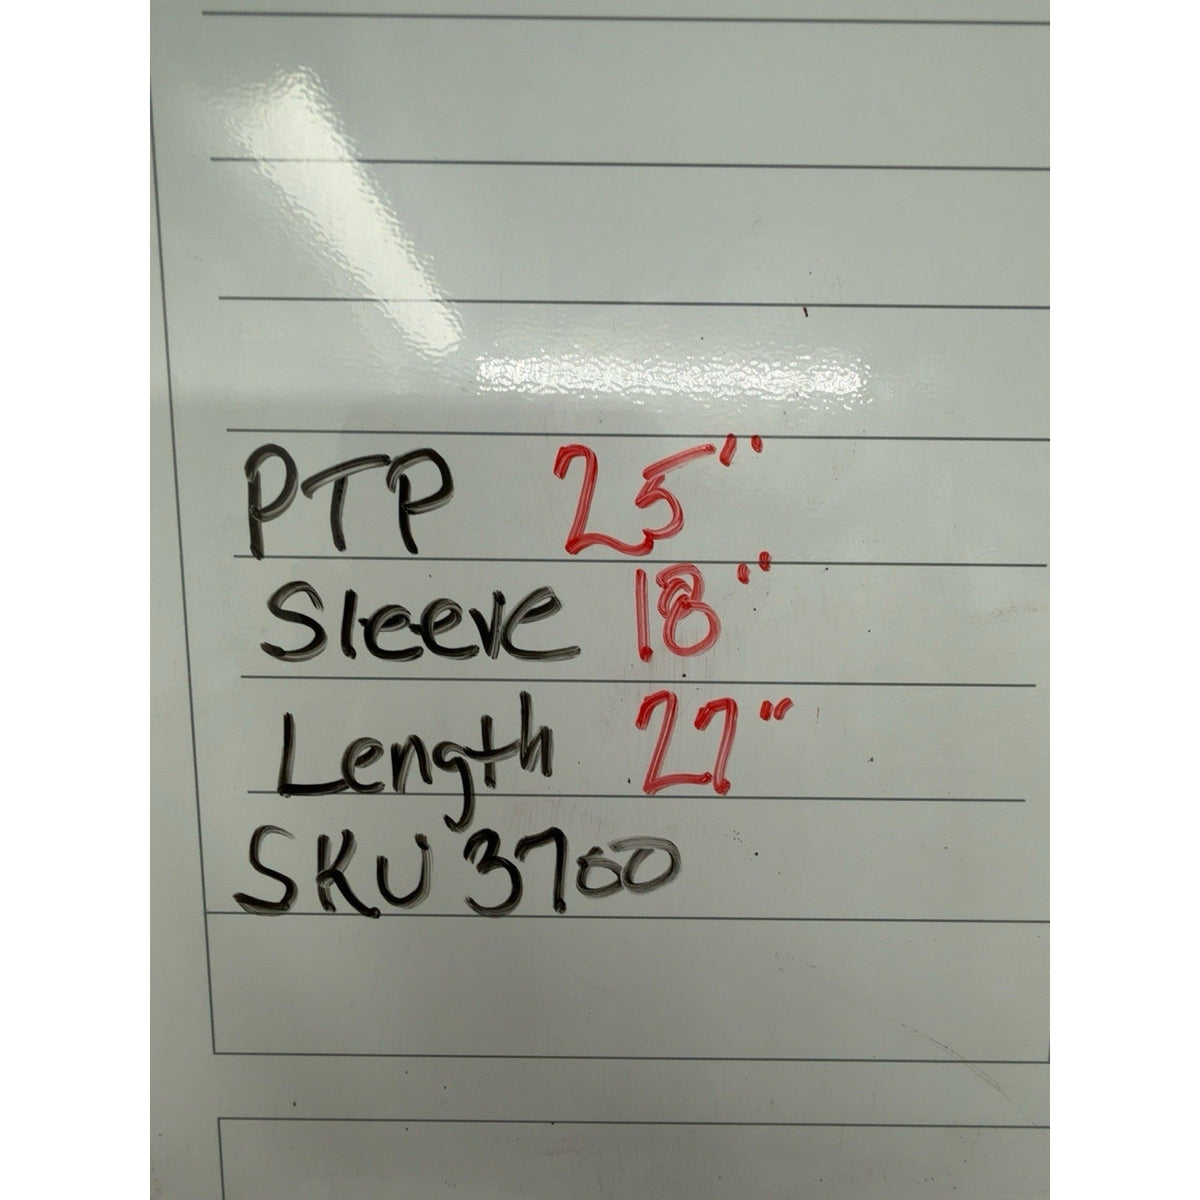 PTP 25"
Sleeve 18"
Length 27"
SKU 3700